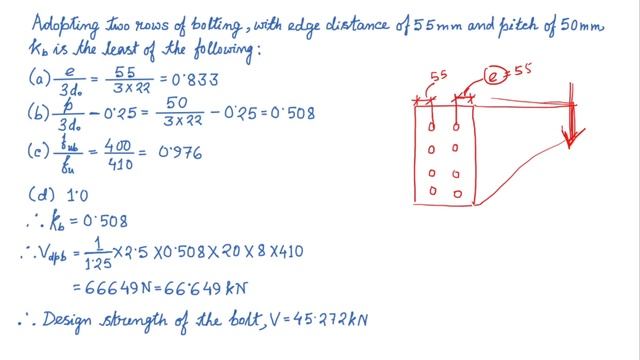 Adopting two rows of bolting, with edge distance of 55mm and pitch of 50mm
kb is the least of the following:
(a) e/3d₀ = 55/(3×22) = 0.833
(b) p/3d₀ - 0.25 = 50/(3×22) - 0.25 = 0.508
(c) fub/fu = 400/410 = 0.976
(d) 1.0
∴ kb = 0.508
∴ Vdpb = 1/1.25 × 2.5 × 0.508 × 20 × 8 × 410
= 66649N = 66.649 kN
∴ Design strength of the bolt, V = 45.272kN
55
e = 55